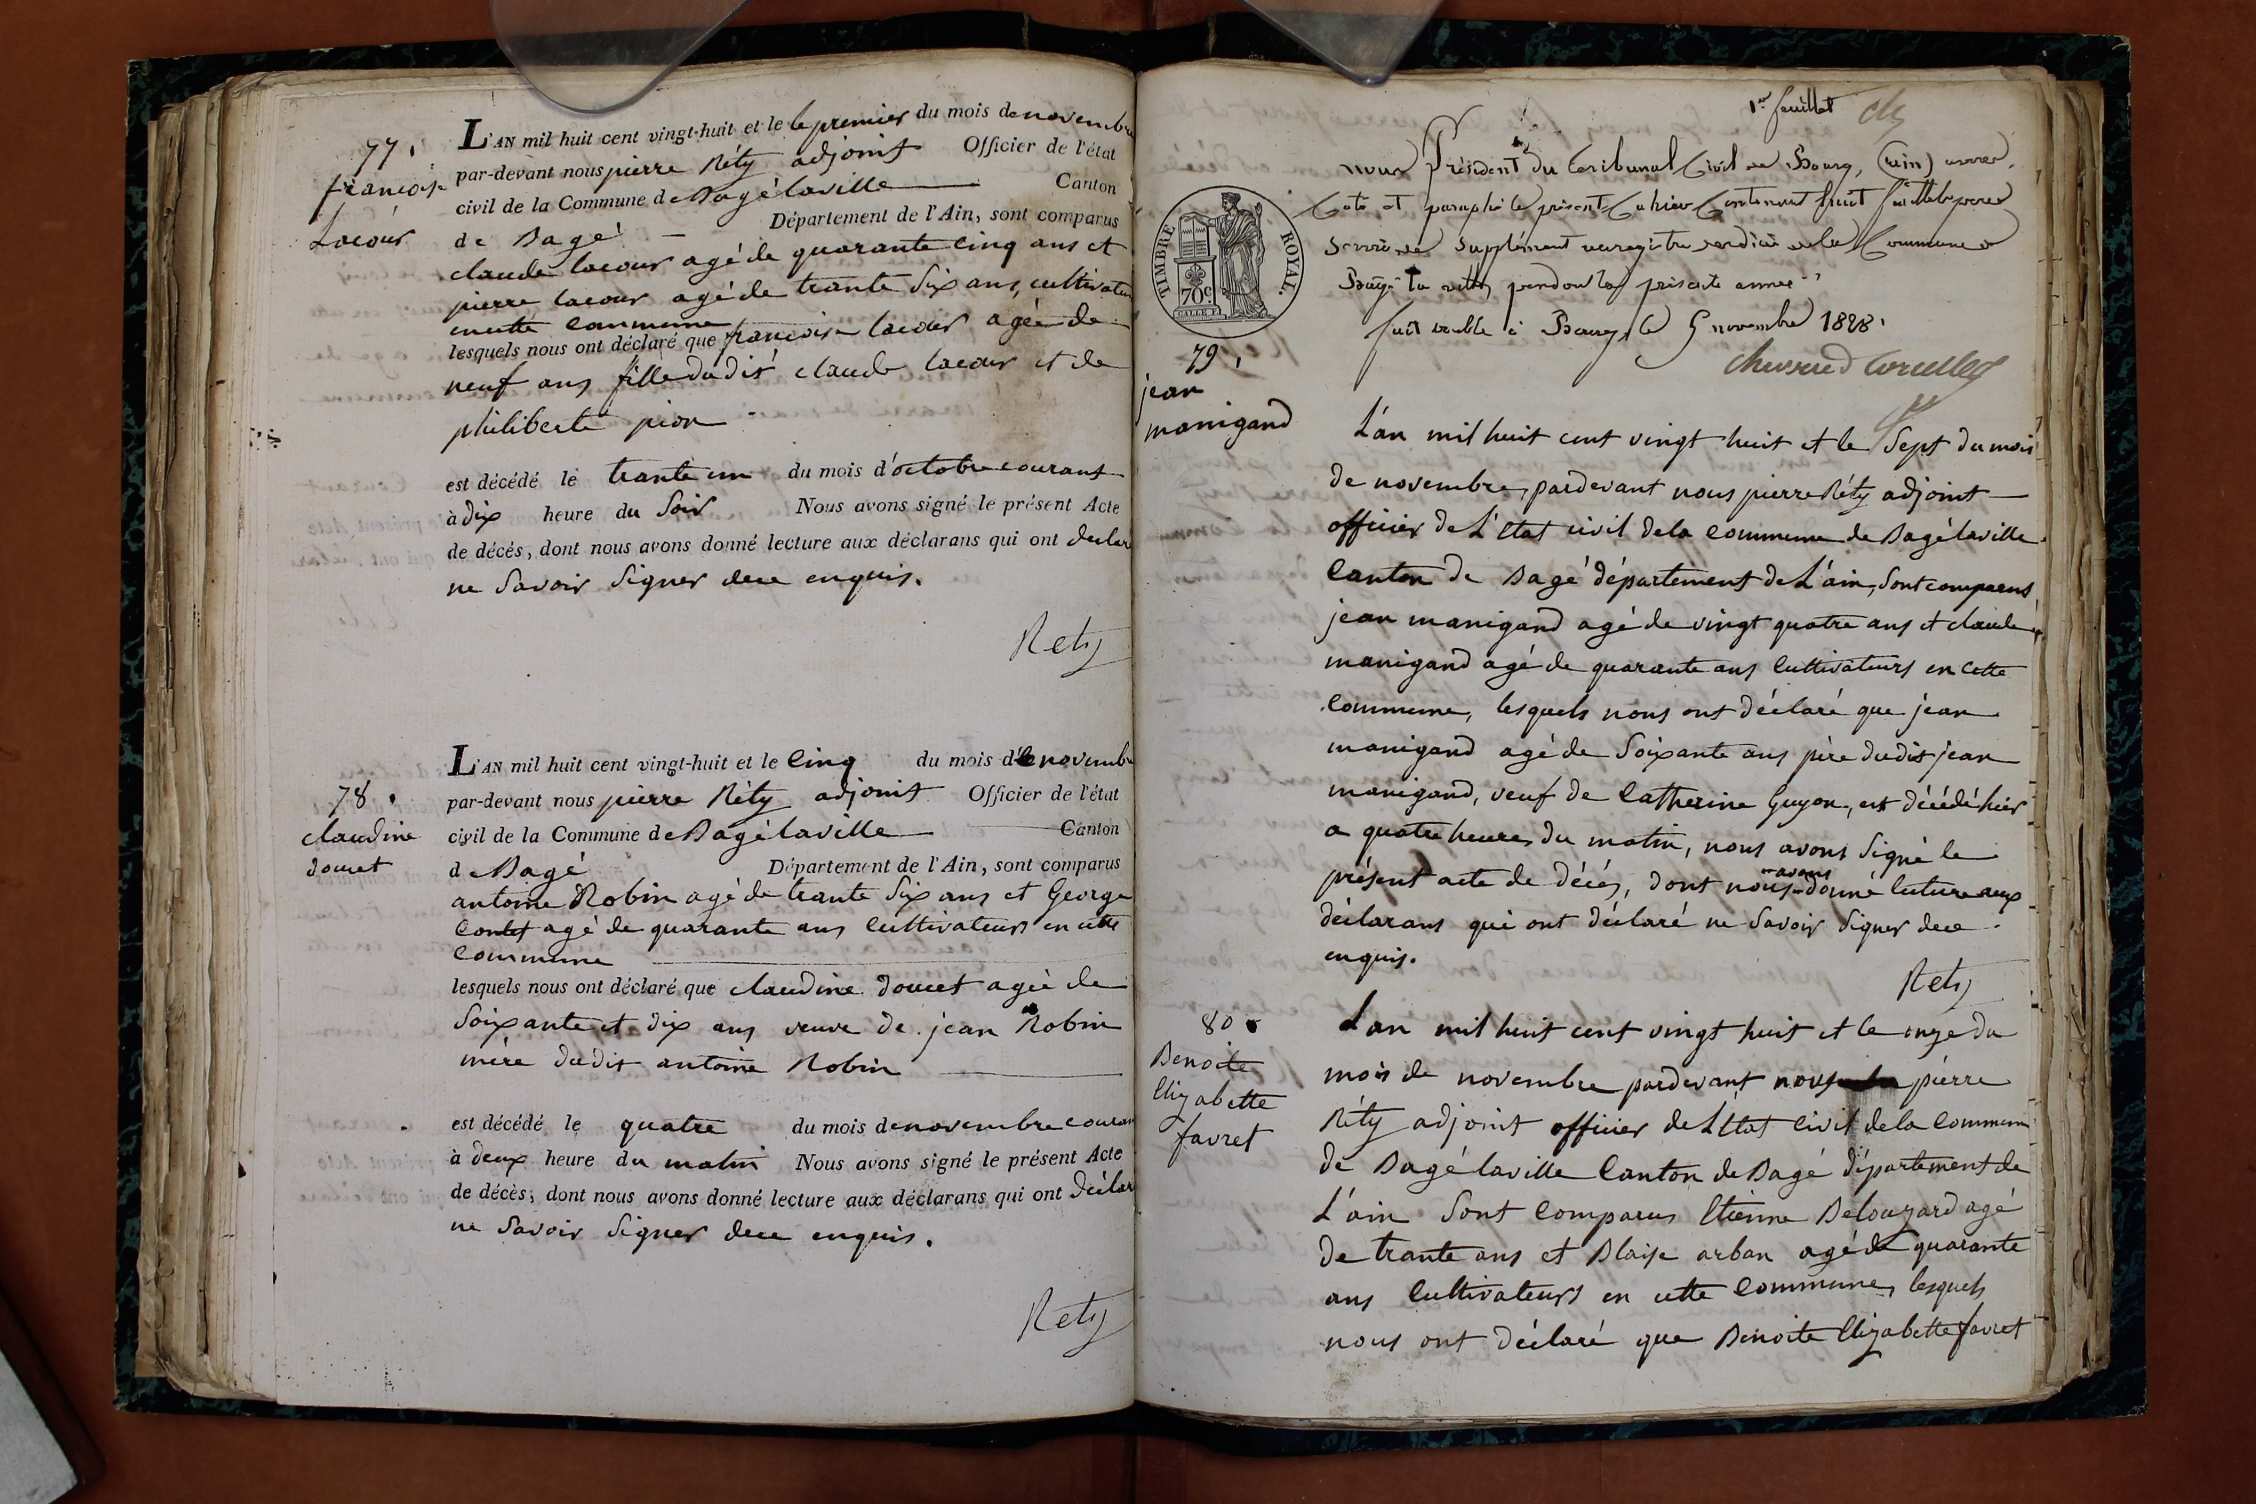 77.
françoise
Lacour
L'AN mil huit cent vingt-huit et le le premier du mois de novembre
par-devant nous pierre Réty adjoint Officier de l'état
civil de la Commune de Bagélaville Canton
de Bagé Département de l'Ain, sont comparus
claude lacour agé de quarante cinq ans et
pierre lacour agé de trante six ans, cultivateurs
en cette commune
lesquels nous ont déclaré que françoise lacour agée de
neuf ans fille dudit claude lacour et de
philiberte pion
est décédé le trante un du mois d'octobre courant
à dix heure du soir Nous avons signé le présent Acte
de décés, dont nous avons donné lecture aux déclarans qui ont déclar
ne savoir signer dece enquis.
Rety
78.
claudine
doucet
L'AN mil huit cent vingt-huit et le cinq du mois de novembre
par-devant nous pierre Réty adjoint Officier de l'état
civil de la Commune de Bagélaville Canton
de Bagé Département de l'Ain, sont comparus
antoine Robin agé de trante six ans et George
agé de quarante ans cultivateurs en cette
commune
lesquels nous ont déclaré que claudine doucet agée de
soixante et dix ans veuve de jean Robin
mère dudit antoine Robin
est décédé le quatre du mois de novembre couran
à deux heure du matin Nous avons signé le présent Acte
de décès, dont nous avons donné lecture aux déclarans qui ont déclar
ne savoir signer dece enquis.
Rety
1er feuillet
nous Président du tribunal Civil de Bourg, (ain) avons
Coté et paraphé le présent Cahier Contenant huit feuillets pour
servir de supplément au registre de décès de la Commune de
Bagé la ville, pendant la présente année
fait double à Bourg, le 5 novembre 1828.
TIMBRE ROYAL.
70c
79.
jean
manigand
L'an mil huit cent vingt huit et le sept du mois
de novembre, pardevant nous pierre Réty adjoint
officier de L'état civil de la commune de Bagélaville
canton de Bagé département de L'ain, sont comparus
jean manigand agé de vingt quatre ans et claude
manigand agé de quarante ans cultivateurs en cette
commune, lesquels nous ont déclaré que jean
manigand agé de soixante ans père dudit jean
manigand, veuf de catherine Guyon, est décédé hier
a quatre heures du matin, nous avons signé le
présent acte de décés, dont nous avons donné lecture aux
déclarans qui ont déclaré ne savoir signer dece
enquis.
Rety
80.
Benoite
Elizabette
favret
L'an mil huit cent vingt huit et le onze du
mois de novembre pardevant nous pierre
Réty adjoint officier de L'état civil de la commune
de Bagélaville canton de Bagé département de
L'ain sont comparus Etienne Belouzard agé
de trante ans et Blaise arban agé de quarante
ans cultivateurs en cette commune, lesquels
nous ont déclaré que Benoite Elizabette favret